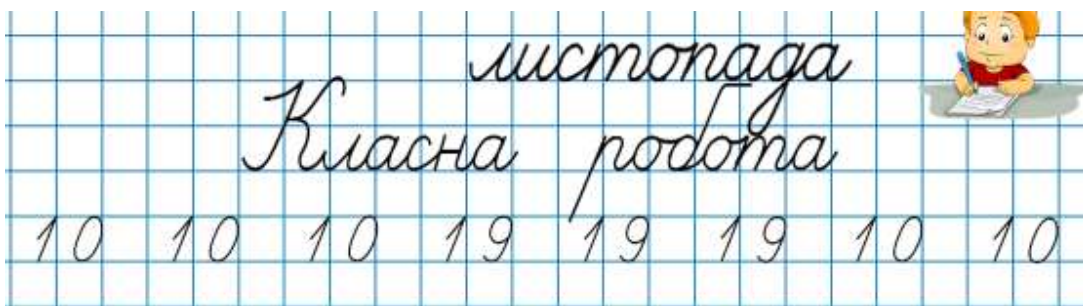 листопада
Класна робота
10 10 10 19 19 19 10 10